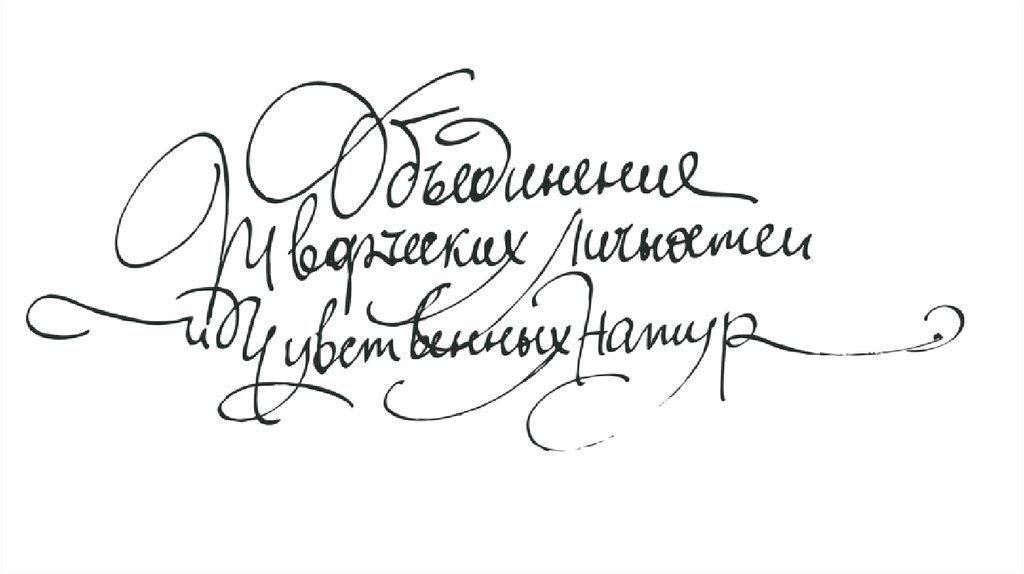 Объединение
Творческих Личностей
и Чувственных Натур